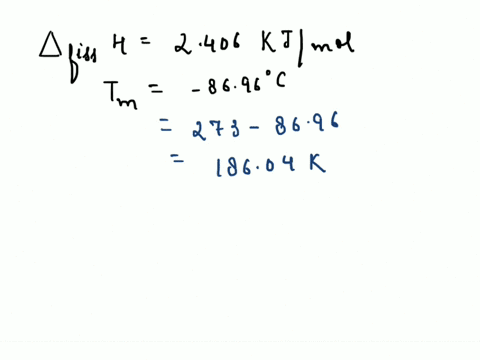 Δfiss H = 2.406 KJ/mol
Tm = -86.96°C
= 273 - 86.96
= 186.04 K